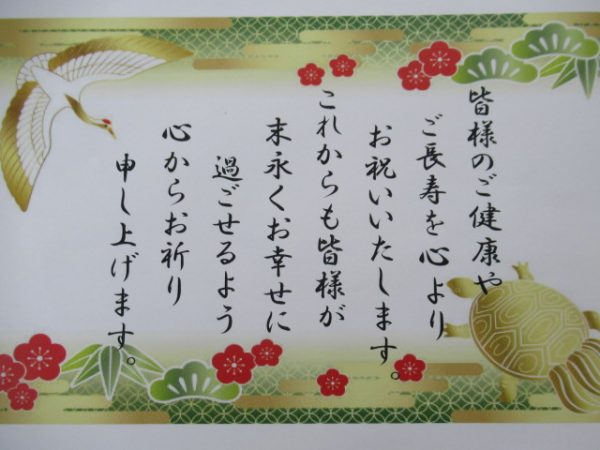 皆様のご健康や
ご長寿を心より
お祝いいたします。
これからも皆様が
末永くお幸せに
過ごせるよう
心からお祈り
申し上げます。